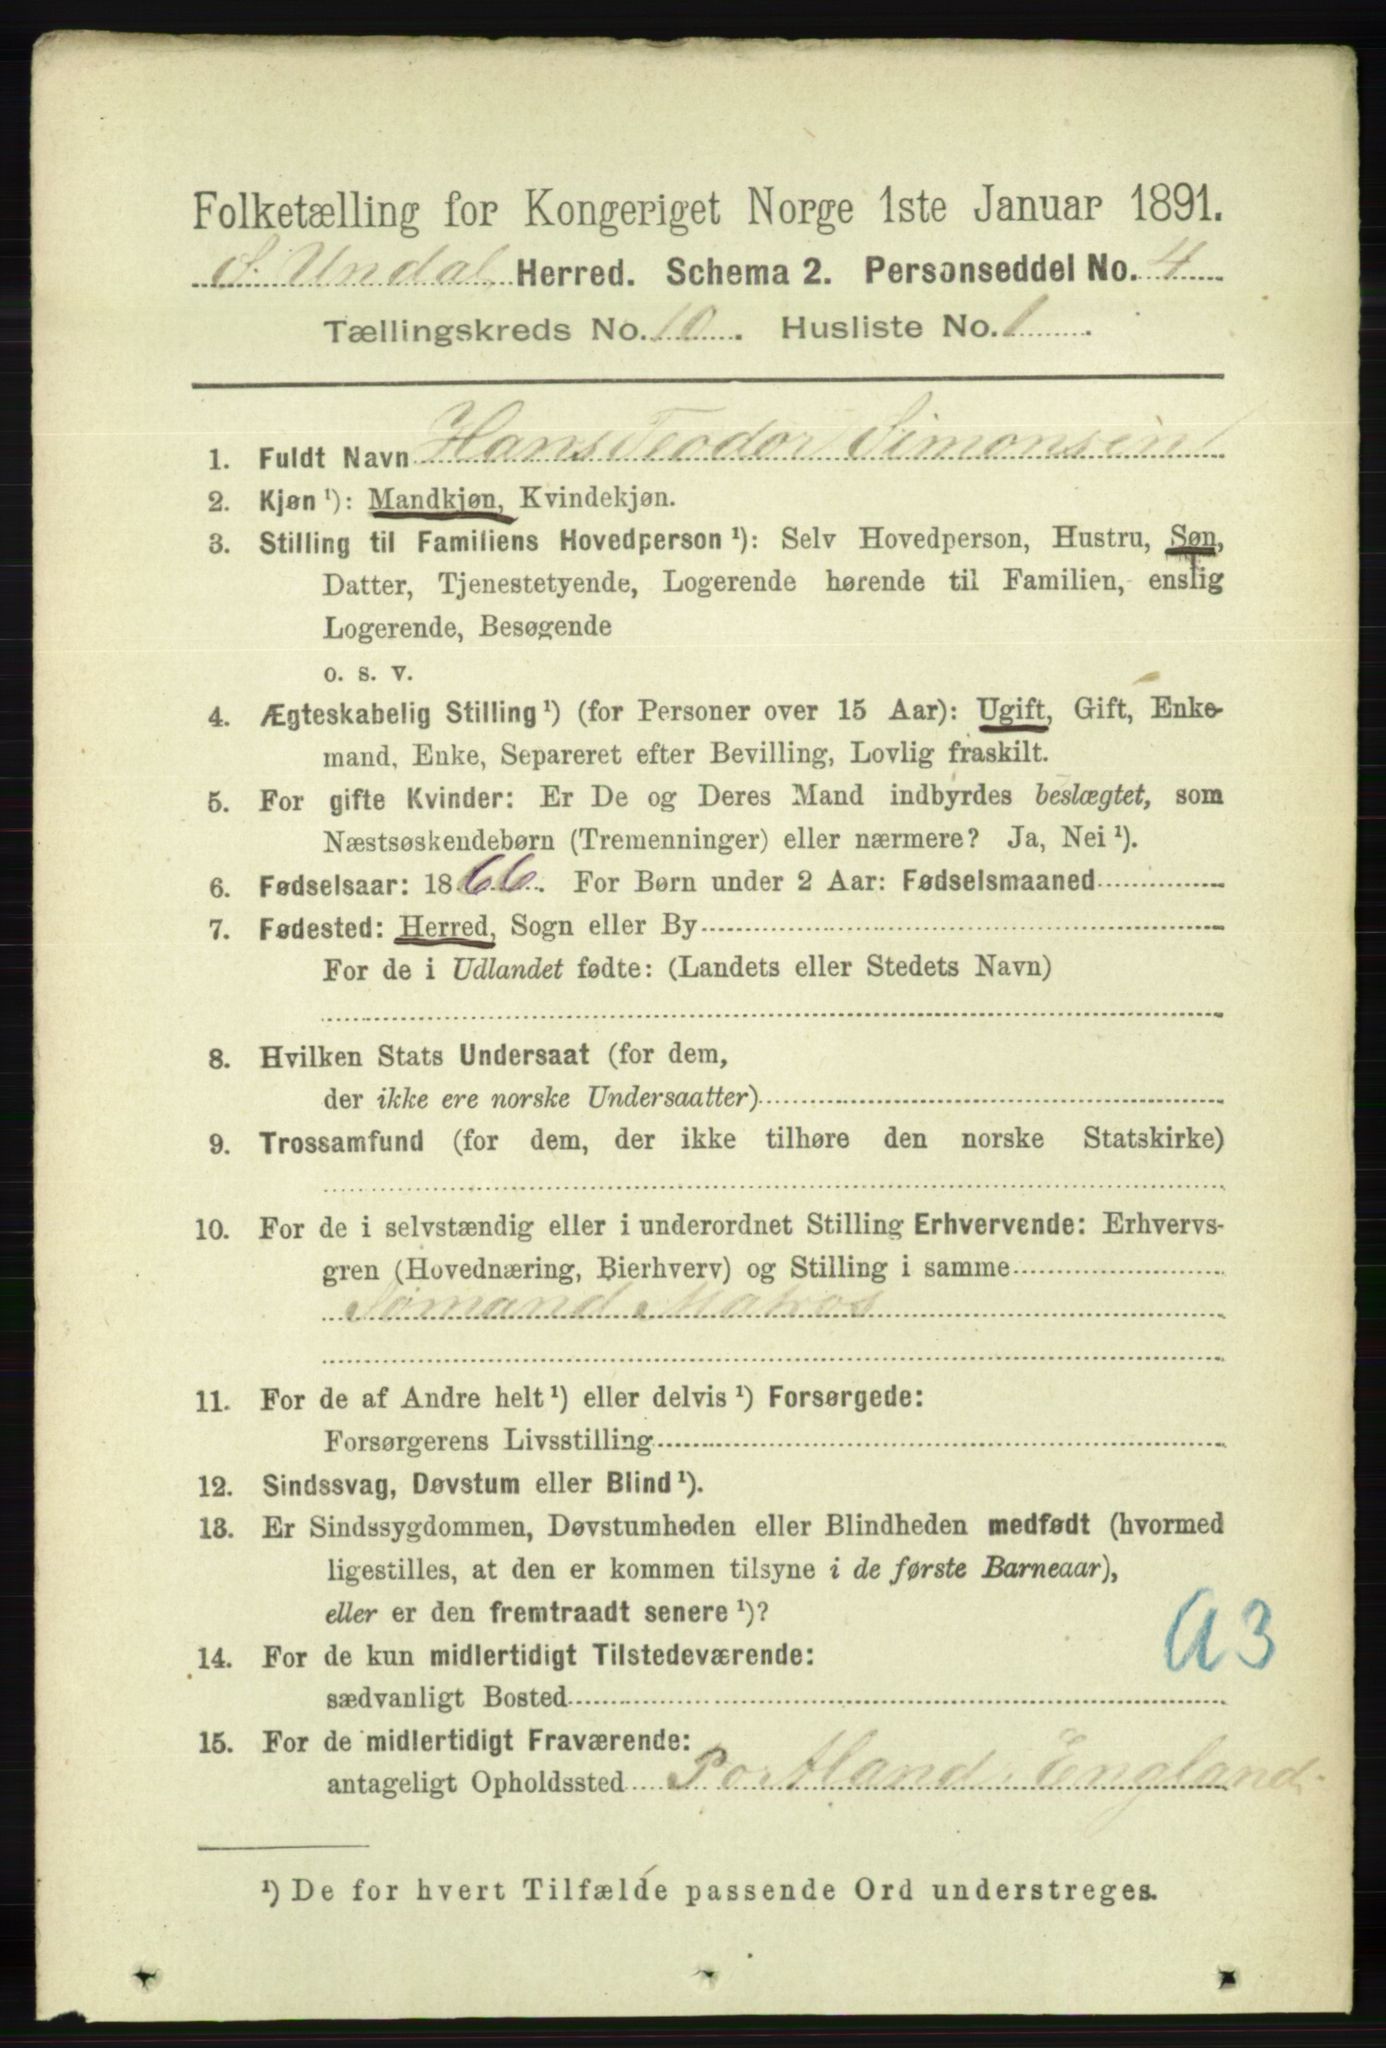 Folketælling for Kongeriget Norge 1ste Januar 1891.
S. Undal Herred. Schema 2. Personseddel No. 4
Tællingskreds No. 10. Husliste No. 1
1. Fuldt Navn Hans Teodor Simonsen
2. Kjøn ¹): Mandkjøn, Kvindekjøn.
3. Stilling til Familiens Hovedperson ¹): Selv Hovedperson, Hustru, Søn,
Datter, Tjenestetyende, Logerende hørende til Familien, enslig
Logerende, Besøgende
o. s. v.
4. Ægteskabelig Stilling ¹) (for Personer over 15 Aar): Ugift, Gift, Enke-
mand, Enke, Separeret efter Bevilling, Lovlig fraskilt.
5. For gifte Kvinder: Er De og Deres Mand indbyrdes beslægtet, som
Næstsøskendebørn (Tremenninger) eller nærmere? Ja, Nei ¹).
6. Fødselsaar: 1866. For Børn under 2 Aar: Fødselsmaaned
7. Fødested: Herred, Sogn eller By
For de i Udlandet fødte: (Landets eller Stedets Navn)
8. Hvilken Stats Undersaat (for dem,
der ikke ere norske Undersaatter)
9. Trossamfund (for dem, der ikke tilhøre den norske Statskirke)
10. For de i selvstændig eller i underordnet Stilling Erhvervende: Erhvervs-
gren (Hovednæring, Bierhverv) og Stilling i samme
Sømand Matros
11. For de af Andre helt ¹) eller delvis ¹) Forsørgede:
Forsørgerens Livsstilling
12. Sindssvag, Døvstum eller Blind ¹).
13. Er Sindssygdommen, Døvstumheden eller Blindheden medfødt (hvormed
ligestilles, at den er kommen tilsyne i de første Barneaar),
eller er den fremtraadt senere ¹)?
a3
14. For de kun midlertidigt Tilstedeværende:
sædvanligt Bosted
15. For de midlertidigt Fraværende:
antageligt Opholdssted Portland, England
¹) De for hvert Tilfælde passende Ord understreges.